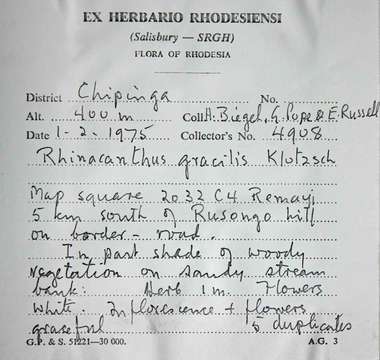 EX HERBARIO RHODESIENSI
(Salisbury — SRGH)
FLORA OF RHODESIA
District Chipinga No.
Alt. 400 m Coll. H. Biegel, G. Pope & E. Russell
Date 1-2-1975 Collector's No. 4908
Rhinacanthus gracilis Klotzsch
Map square 2032 C4 Remayi
5 km south of Rusongo hill
on border-road.
In part shade of woody
vegetation on sandy stream
bank: Herb 1m. Flowers
white. Inflorescence + flowers
graceful 5 duplicates
G.P. & S. 51221—30 000. A.G. 3